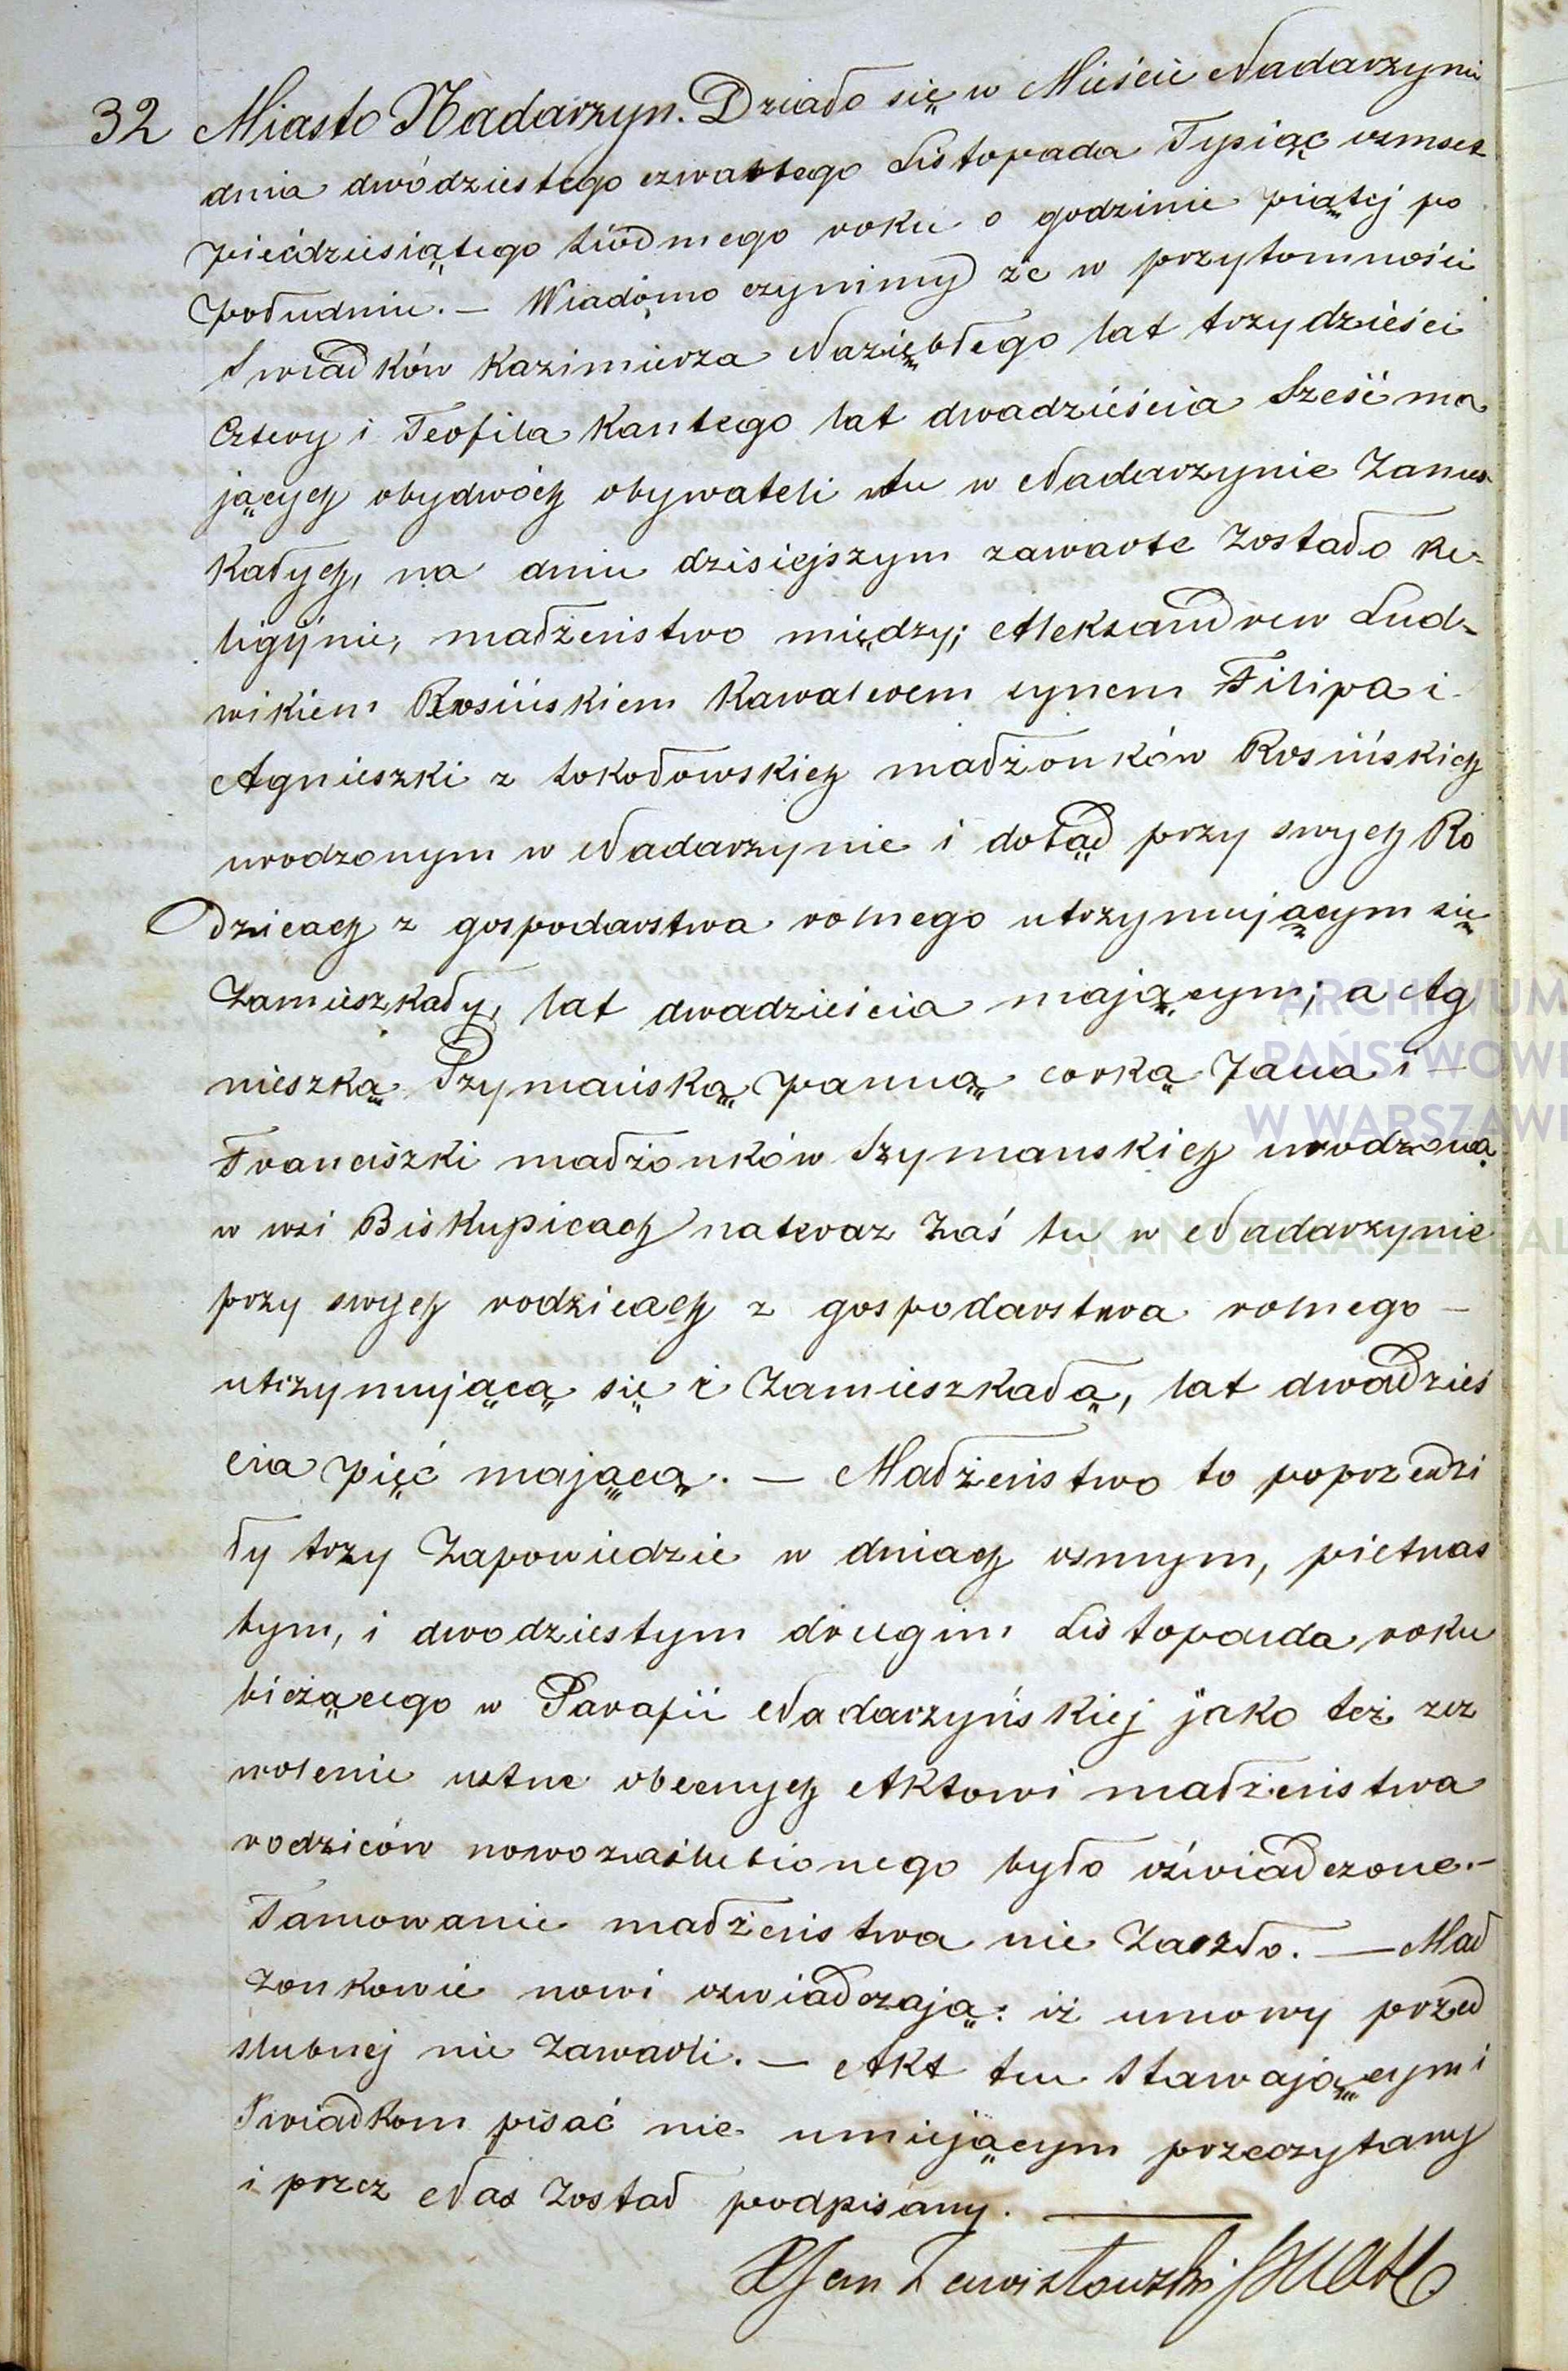 32 Miasto Nadarzyn. Działo się w Mieście Nadarzyniu
dnia dwódziestego czwartego Listopada Tysiąc osmset
pięćdziesiątego siódmego roku o godzinie piątej po
południu. — Wiadomo czynimy że w przytomności
Swiadków Kazimierza Naziębłego lat trzydzieści
Cztery i Teofila Kantego lat dwadzieścia Sześć ma
jących obydwóch obywateli tu w Nadarzynie Zamiesz
Kałych, na dniu dzisiejszym zawarte Zostało Re-
ligijnie, małżeństwo między; Aleksandrem Lud-
wikiem Rosińskiem Kawalerem synem Filipa i
Agnieszki z Sokołowskich małżonków Rosińskich
urodzonym w Nadarzynie i dotąd przy swych Ro
dzicach z gospodarstwa rolnego utrzymującym się
Zamieszkały, lat dwadzieścia mającym; a Ag
nieszką Szymańską panną corką Jana i —
Franciszki małżonków Szymanskich urodzoną
w wsi Biskupicach nateraz Zaś tu w Nadarzynie
przy swych rodzicach z gospodarstwa rolnego —
utrzymującą się i Zamieszkałą, lat dwadzieś
cia pięć mającą. — Małżeństwo to poprzedzi
ły trzy Zapowiedzie w dniach osmym, pietnas
tym, i dwodziestym drugim Listopada roku
bieżącego w Parafii Nadarzyńskiej jako też zez
wolenie ustne obecnych Aktowi małżeństwa
rodziców nowozaślubionego było oświadczone. —
Tamowanie małżeństwa nie Zaszło. — Mał
żonkowie nowi oswiadczają: iż umowy przed
slubnej nie Zawarli. — Akt ten Stawającymi
Swiadkom pisać nie umiejącym przeczytany
i przez Nas Został podpisany. —
X Jan Zawistowski
ARCHIWUM
PAŃSTWOWE
W WARSZAWIE
SKANOTEKA.GENEAL